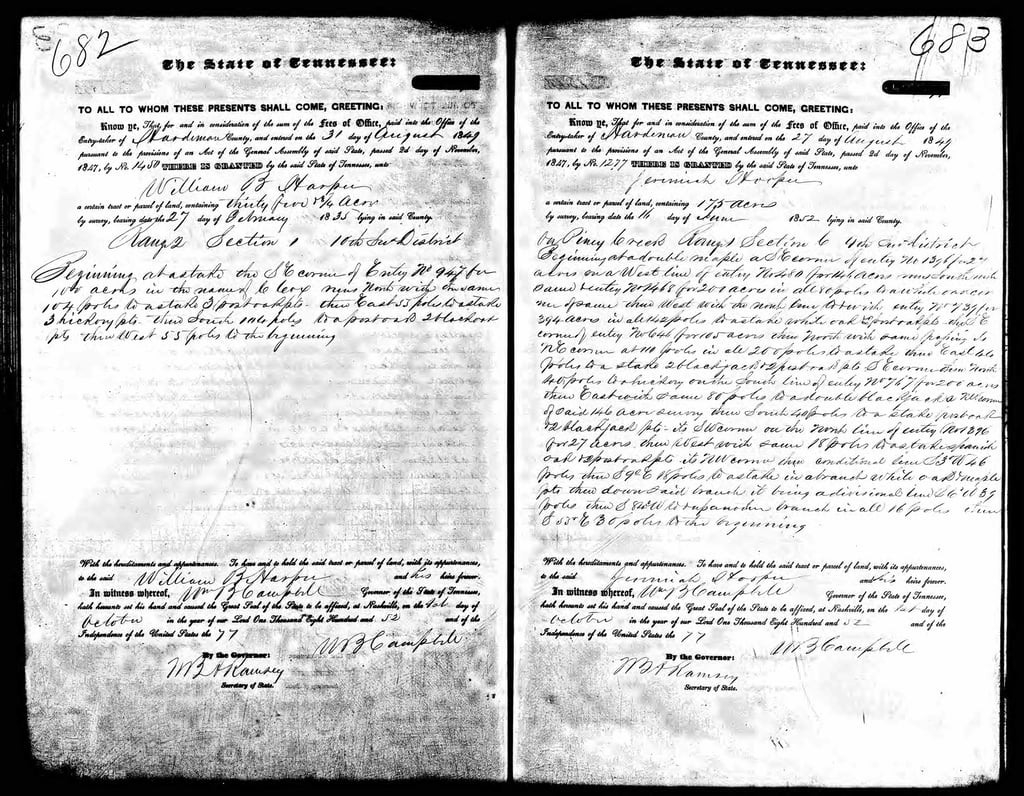 682
The State of Tennessee:
TO ALL TO WHOM THESE PRESENTS SHALL COME, GREETING:
Know ye, That, for and in consideration of the sum of the Fees of Office, paid into the Office of the
Entry-taker of Hardeman County, and entered on the 31 day of August 1849
pursuant to the provisions of an Act of the General Assembly of said State, passed 2d day of November,
1847, by No. 1430 THERE IS GRANTED by the said State of Tennessee, unto
William B Harper
a certain tract or parcel of land, containing thirty five 3/4 Acres
by survey, bearing date the 27 day of February 1835 lying in said County.
Range 2 Section 1 10th Sur District
Beginning at a stake the S E corner of Entry No 947 for
100 acres in the name of C Cox runs North with the same
104 poles to a stake 3 post oak pts then East 55 poles to a stake
3 hickory pts then South 104 poles to a post oak 2 black oak
pts then West 55 poles to the beginning
With the hereditaments and appurtenances. To have and to hold the said tract or parcel of land, with its appurtenances,
to the said William B Harper and his heirs forever.
In witness whereof, Wm B Campbell Governor of the State of Tennessee,
hath hereunto set his hand and caused the Great Seal of the State to be affixed, at Nashville, on the 1st day of
October in the year of our Lord One Thousand Eight Hundred and 52 and of the
Independence of the United States the 77
W B Campbell
By the Governor:
W B A Ramsey
Secretary of State.
683
The State of Tennessee:
TO ALL TO WHOM THESE PRESENTS SHALL COME, GREETING:
Know ye, That, for and in consideration of the sum of the Fees of Office, paid into the Office of the
Entry-taker of Hardeman County, and entered on the 27 day of August 1849
pursuant to the provisions of an Act of the General Assembly of said State, passed 2d day of November,
1847, by No. 1277 THERE IS GRANTED by the said State of Tennessee, unto
Jeremiah Hooper
a certain tract or parcel of land, containing 175 acres
by survey, bearing date the 16 day of June 1852 lying in said County.
on Piney Creek Range 1 Section 6 9th Sur District
Beginning at a double maple a S E corner of entry No 1396 for 27
acres on a West line of entry No 480 for 146 acres runs South with
same & entry No 468 for 200 acres in all 80 poles to a white oak cor
ner of same then West with the North line of entry No 737 for
394 acres in all 142 poles to a stake white oak 2 post oak pts the S E
corner of entry No 646 for 105 acres then North with same passing its
N E corner at 110 poles in all 200 poles to a stake then East
poles to a stake 2 black jack & 2 post oak pts S E corner then North
46 poles to a hickory on the South line of entry No 767 for 200 acres
then East with same 80 poles to a double black jack a N W corner
of said 146 acre survey then South 40 poles to a stake post oak
& 2 black jack pts its S W corner on the North line of entry No 1396
for 27 acres then West with same 18 poles to a stake spanish
oak & 2 post oak pts its N W corner then conditional line S 3° W 46
poles then S 9° E 18 poles to a stake in a branch white oak & maple
pts then down said branch it being a divisional line S 6° W 39
poles then S 84° W to & up another branch in all 16 poles then
S 55° E 30 poles to the beginning
With the hereditaments and appurtenances. To have and to hold the said tract or parcel of land, with its appurtenances,
to the said Jeremiah Hooper and his heirs forever.
In witness whereof, Wm B Campbell Governor of the State of Tennessee,
hath hereunto set his hand and caused the Great Seal of the State to be affixed, at Nashville, on the 1st day of
October in the year of our Lord One Thousand Eight Hundred and 52 and of the
Independence of the United States the 77
W B Campbell
By the Governor:
W B A Ramsey
Secretary of State.